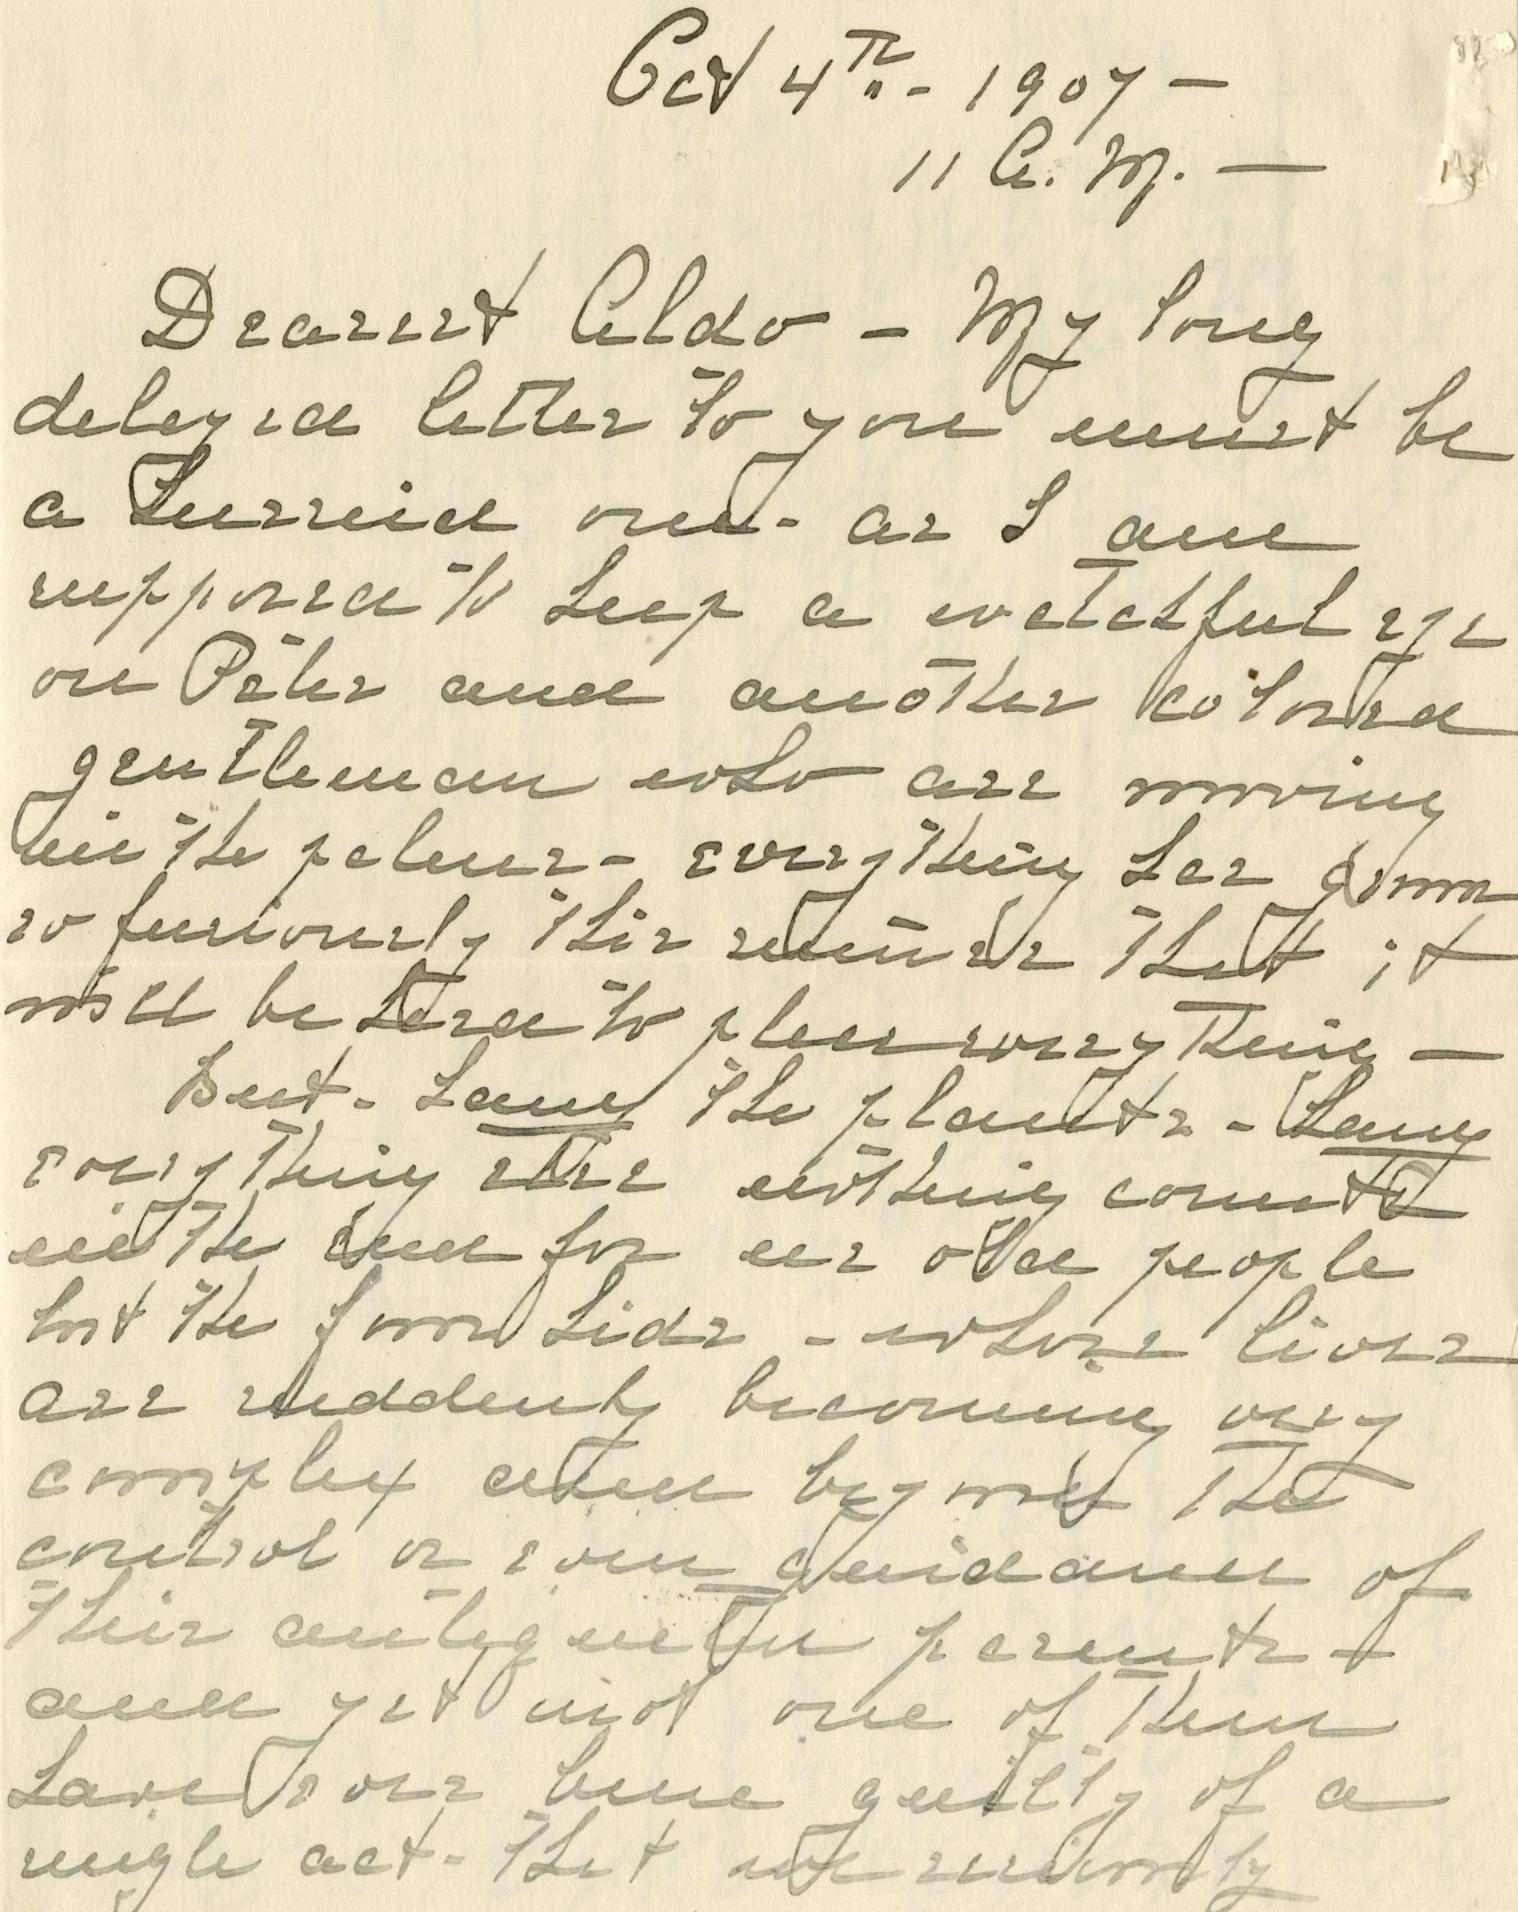 Oct 4th - 1907 -
11 A. M. -
Dearest Aldo - My long
delayed letter to you must be
a hurried one - as I am
supposed to keep a watchful eye
on Peter and another colored
gentleman who are moving
in the palms - everything has grown
so furiously this summer that it
will be hard to place everything -
But - hang the plants - hang
everything else nothing counts
in the end for us old people
but the four kids - whose lives
are suddenly becoming very
complex and beyond the
control or even guidance of
their antiquated parents -
and yet not one of them
have ever been guilty of a
single act - that we seriously